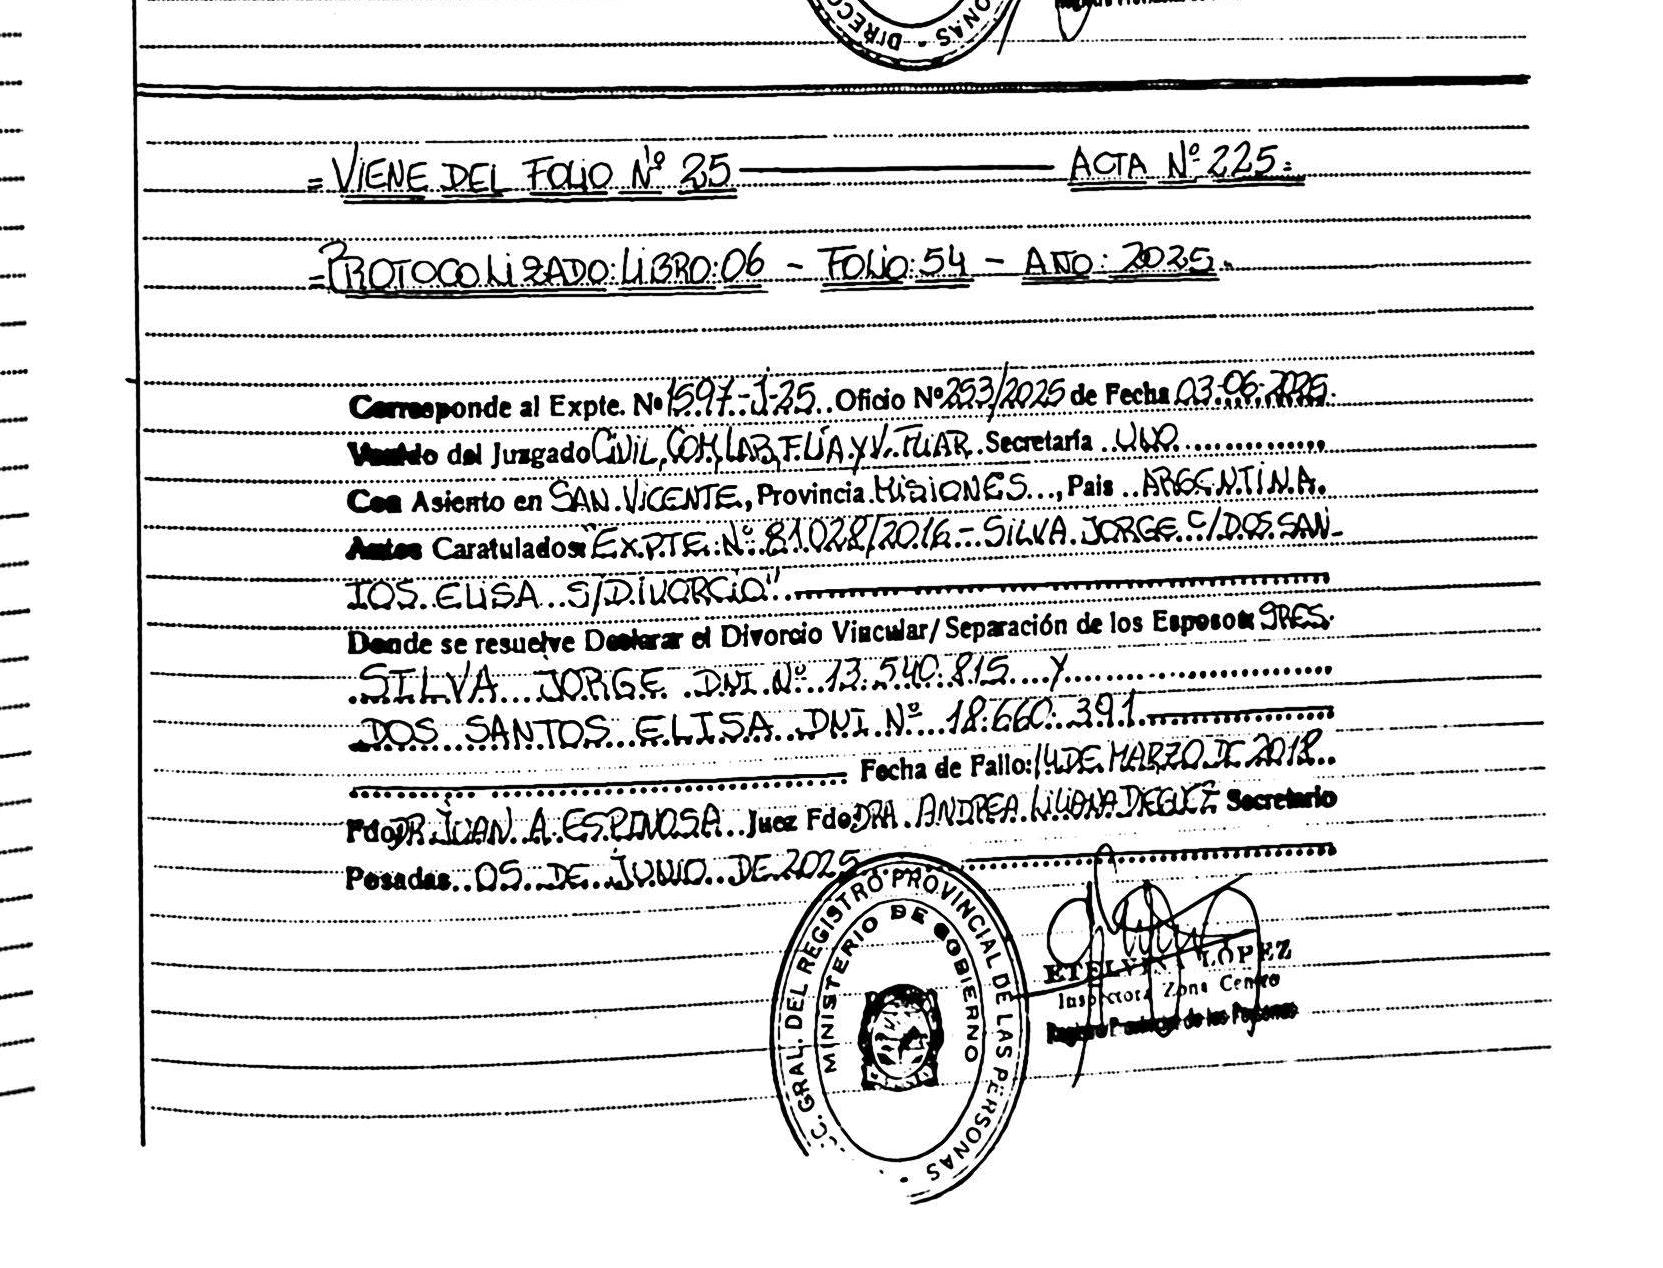 DIRECC
ONAS -
=VIENE DEL FOLIO Nº 25 ACTA Nº 225=
=PROTOCOLIZADO: LIBRO: 06 - FOLIO: 54 - AÑO: 2025.
Corresponde al Expte. Nº 1597-J-25. Oficio Nº 253/2025 de Fecha 03-06-2025.
Venido del Juzgado CIVIL, COM, LAB, FLIA y V. FLIAR. Secretaría UNO
Con Asiento en SAN VICENTE, Provincia MISIONES, Pais ARGENTINA.
Autos Caratulados: "EXPTE. Nº 81.028/2016 - SILVA JORGE C/DOS SAN-
TOS ELISA S/DIVORCIO"
Donde se resuelve Declarar el Divorcio Vincular/Separación de los Esposos: SRES.
SILVA JORGE DNI Nº 13.540.815 Y
DOS SANTOS ELISA DNI Nº 18.660.391
Fecha de Fallo: 14 DE MARZO DE 2018.
Fdo DR. JUAN A. ESPINOSA Juez Fdo: DRA. ANDREA LILIANA DIEGUEZ Secretario
Posadas 05 DE JUNIO DE 2025
C. GRAL. DEL REGISTRO PROVINCIAL DE LAS PERSONAS
MINISTERIO DE GOBIERNO
ETELVINA LÓPEZ
Inspectora Zona Centro
Registro Provincial de las Personas